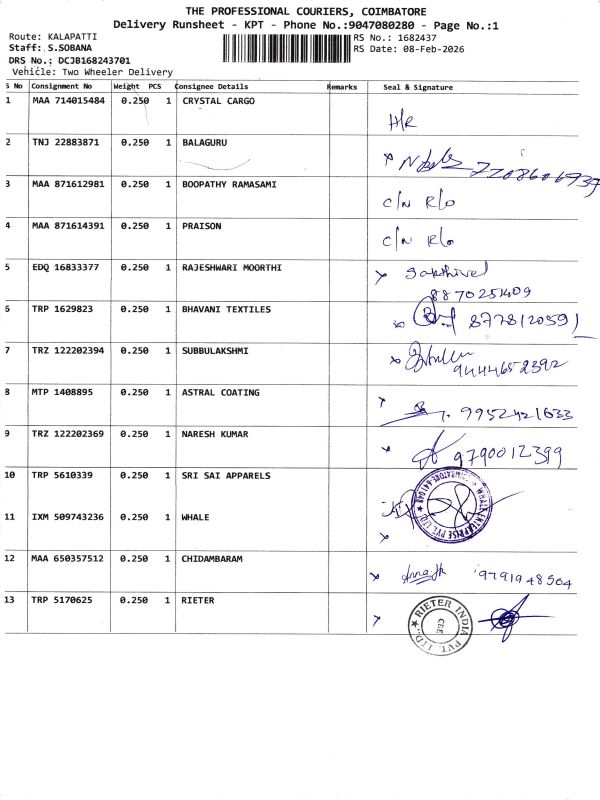 THE PROFESSIONAL COURIERS, COIMBATORE
Delivery Runsheet - KPT - Phone No.:9047080280 - Page No.:1
Route: KALAPATTI
RS No.: 1682437
Staff: S.SOBANA
RS Date: 08-Feb-2026
DRS No.: DCJB168243701
Vehicle: Two Wheeler Delivery
S No Consignment No Weight PCS Consignee Details Remarks Seal & Signature
1 MAA 714015484 0.250 1 CRYSTAL CARGO
H/R
2 TNJ 22883871 0.250 1 BALAGURU
7708606939
3 MAA 871612981 0.250 1 BOOPATHY RAMASAMI
C/N R/O
4 MAA 871614391 0.250 1 PRAISON
C/N R/O
5 EDQ 16833377 0.250 1 RAJESHWARI MOORTHI
Sakthivel
8870251409
6 TRP 1629823 0.250 1 BHAVANI TEXTILES
8778120591
7 TRZ 122202394 0.250 1 SUBBULAKSHMI
9444652392
8 MTP 1408895 0.250 1 ASTRAL COATING
9952421633
9 TRZ 122202369 0.250 1 NARESH KUMAR
9790012399
10 TRP 5610339 0.250 1 SRI SAI APPARELS
11 IXM 509743236 0.250 1 WHALE
WHALE ENTERPRISE PVT. LTD.
12 MAA 650357512 0.250 1 CHIDAMBARAM
9791948504
13 TRP 5170625 0.250 1 RIETER
RIETER INDIA PVT. LTD.
CBE